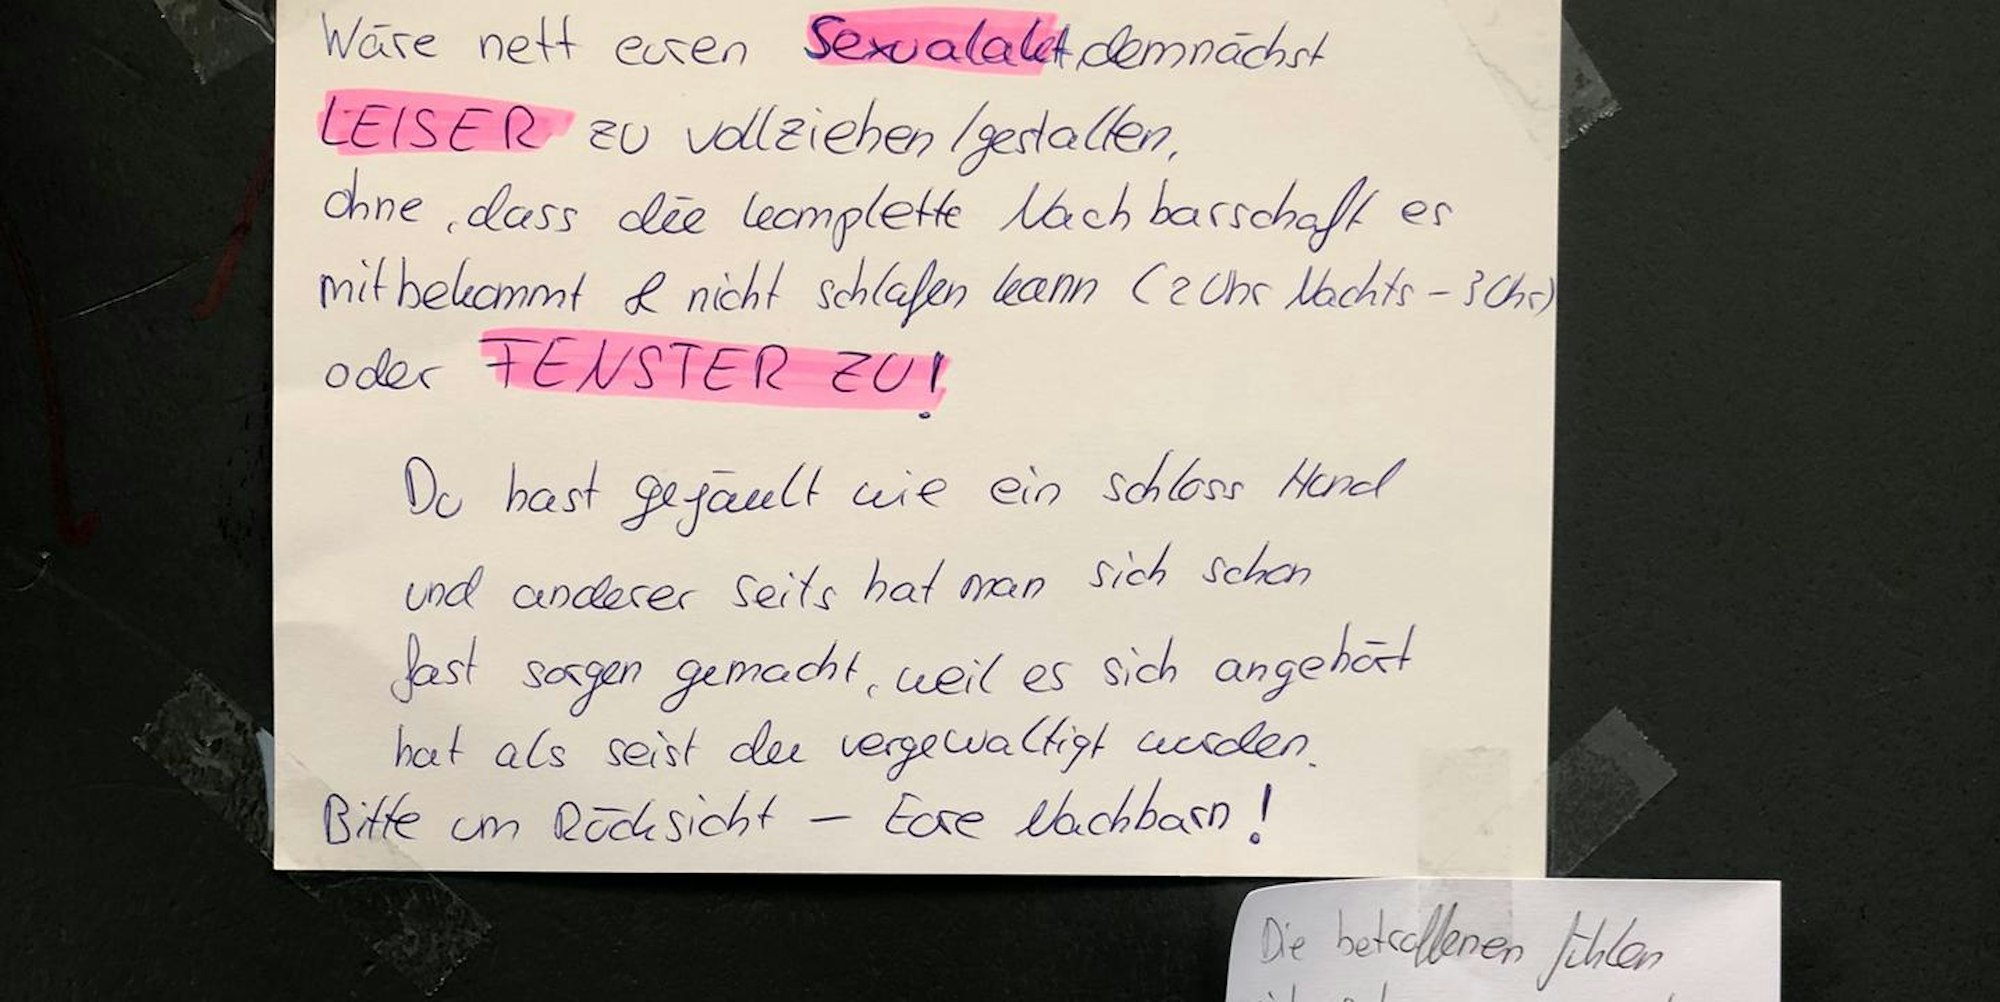 Wäre nett euren Sexualakt, demnächst
LEISER zu vollziehen / gestalten,
ohne, dass die komplette Nachbarschaft es
mitbekommt & nicht schlafen kann (2 Uhr Nachts - 3 Uhr)
oder FENSTER ZU!
Du hast gejäult wie ein schloss Hund
und anderer seits hat man sich schon
fast sorgen gemacht, weil es sich angehört
hat als seist du vergewaltigt wurden.
Bitte um Rücksicht - Eure Nachbarn!
Die betroffenen fühlen